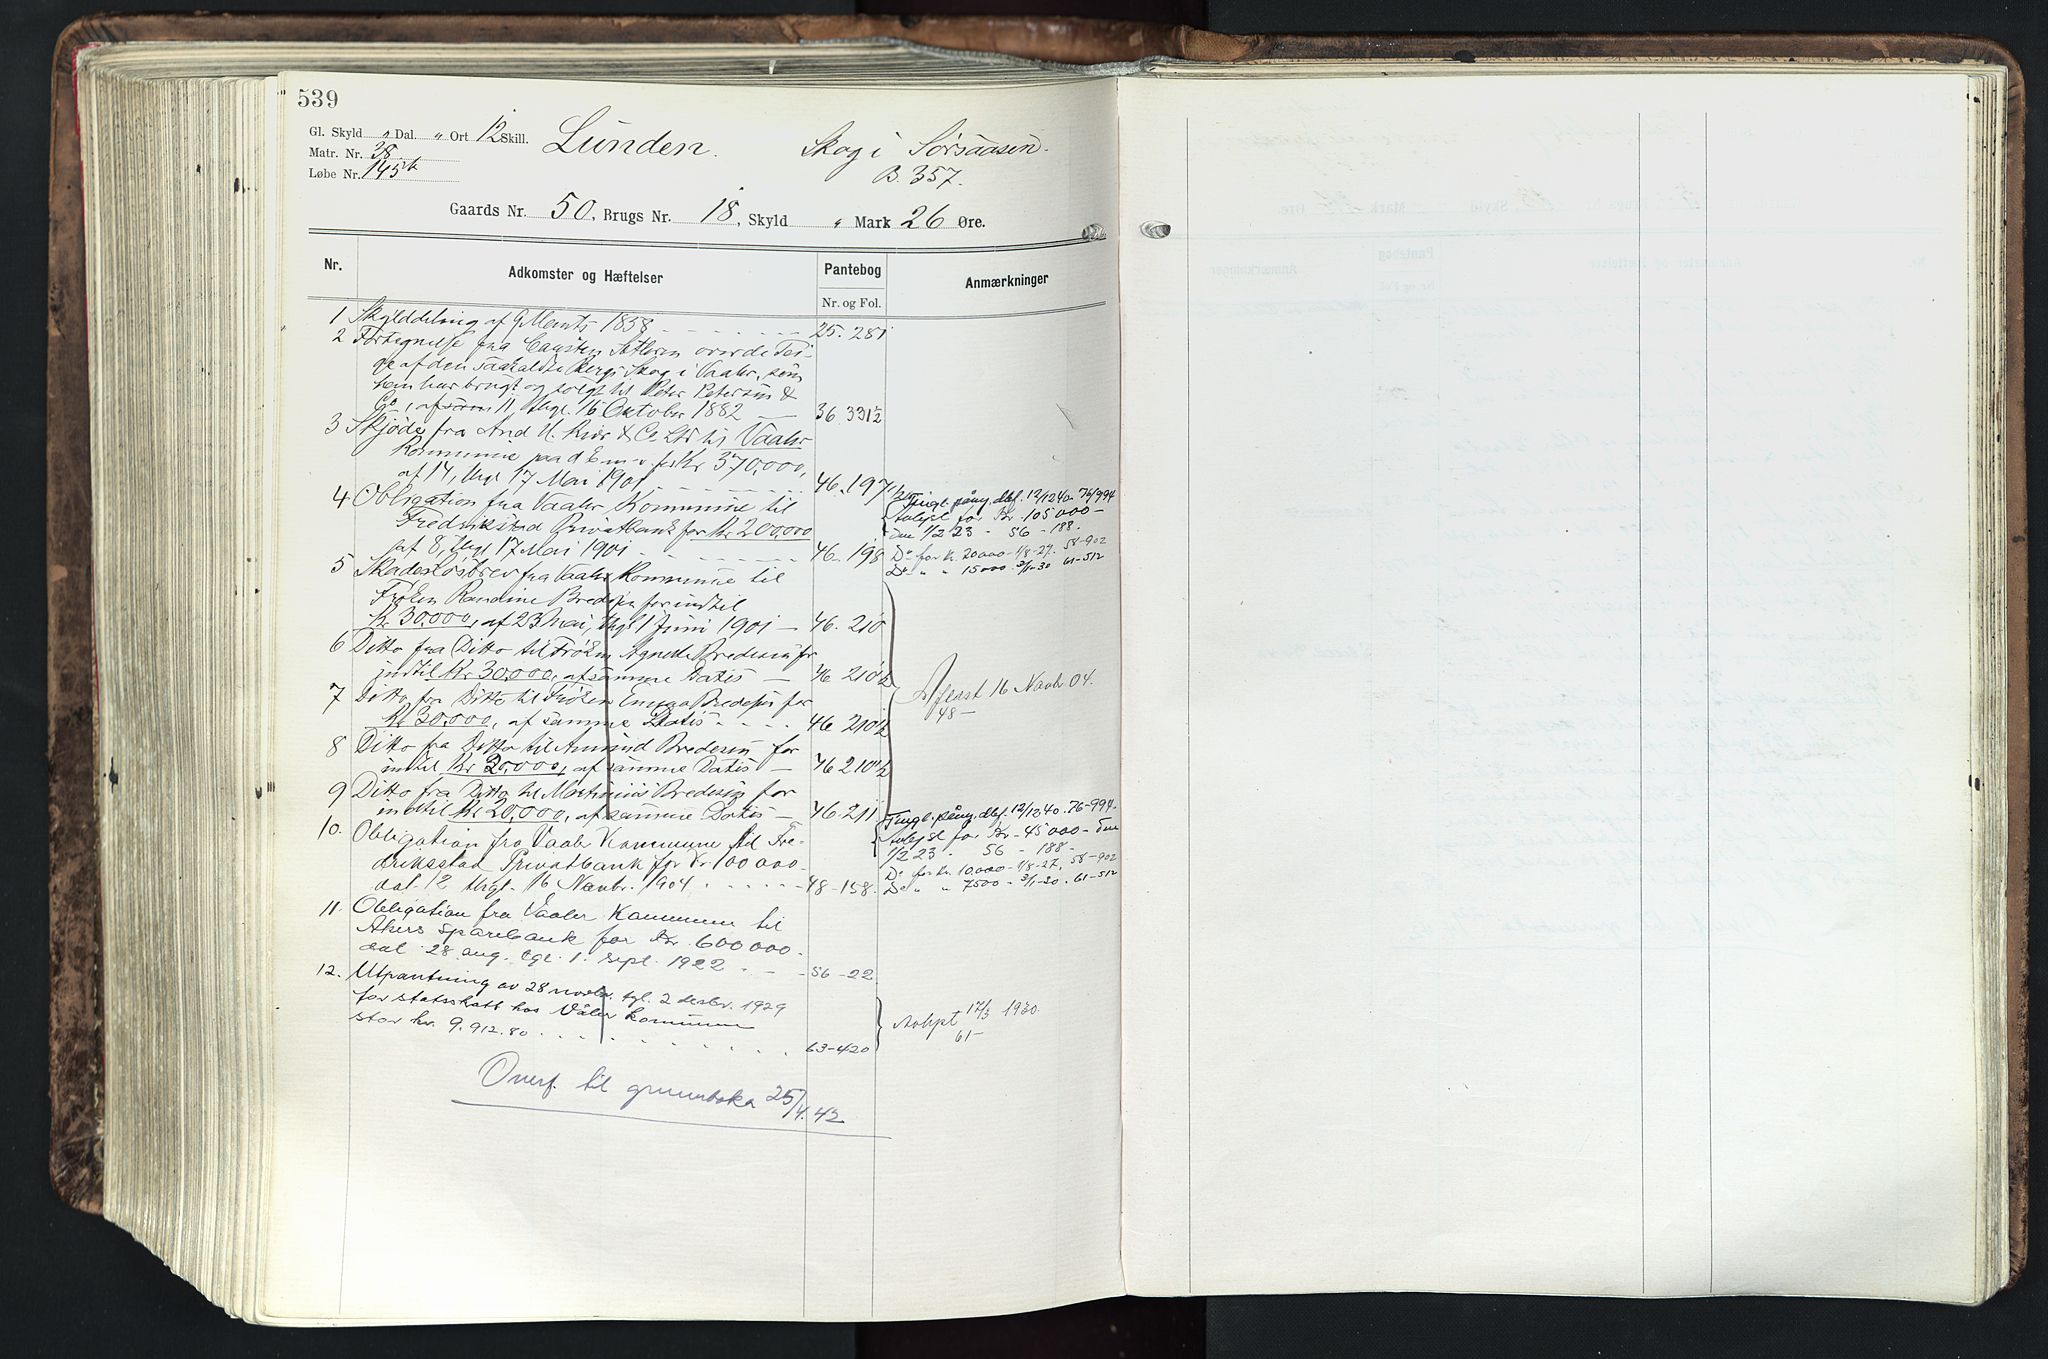 539
Gl. Skyld " Dal. " Ort 12 Skill. Lunden. Skog i Sørsaasen.
Matr. Nr. 38
Løbe Nr. 145 B. 357.
Gaards Nr. 50, Brugs Nr. 18, Skyld " Mark 26 Øre.
Nr. Adkomster og Hæftelser Pantebog Anmærkninger
Nr. og Fol.
1 Skylddeling af 9 Marts 1858 25. 281
2 Fortegnelse fra Carsten over de Tei-
ge af den saakaldte Bergs Skog i Vaaler, som
han har brugt og solgt til Peter Petersen &
Co, af 11, thgl. 16 Oktober 1882 — 36 331½
3 Skjøde fra And H. Kiær & Co Ltd til Vaaler
Kommune paa d E m. v. for Kr 370,000,
af 14, thgl 17 Mai 1901 46. 197
4 Obligation fra Vaaler Kommune til
Fredrikstad Privatbank for Kr 200,000
af 8, thgl 17 Mai 1901 46. 198
Tingl. påny. dbf. 12/12 40. 76/994
Avlyst for Kr. 105 000 —
den 1/2 23 - 56 - 188.
Do for Kr. 20000 - 1/8-27. 58-902
Do " " 15000. 3/1-30 61-512
5 Skadesløsbrev fra Vaaler Kommune til
Frøken Randine Bredesen for indtil
Kr 30,000, af 23 Mai, thgl 1 Juni 1901 — 46. 210
6 Ditto fra Ditto til Frøken Agnette Bredesen for
indtil Kr 30,000, af samme Datis — 46 210½
7 Ditto fra Ditto til Frøken Emma Bredesen for
Kr 30,000, af samme Datis 46 210½
Aflyst 16 Novbr 04.
48 —
8 Ditto fra Ditto til Amund Bredesen for
indtil Kr 20,000, af samme Datis — 46 210½
9 Ditto fra Ditto til Martinius Bredesen for
indtil Kr 20,000, af samme Datis — 46. 211
10. Obligation fra Vaaler Kommune til Fre-
driksstad Privatbank for Kr 100 000.
dat. 12 thgl. 16 Novbr. 1904 48-158.
Tingl. påny. dbf. 12/12 40. 76-994.
Avlyst for Kr - 45 000 - den
1/2 23 . 56 - 188 -
Do for Kr. 10.000 - 1/8-27. 58-902
Do " " 7500 - 3/1-30. 61-512
11. Obligation fra Vaaler Kommune til
Akers sparebank for Kr. 600 000.
dat. 28 aug. tgl. 1. sept. 1922 56-22
12. Utpantning av 28 novbr. tgl. 2 desbr. 1929
for statsskatt hos Våler kommune
stor kr. 9.912.80 63-420
Avlyst 17/3 1930.
61 —
Overf. til grunnboka 25/4.42